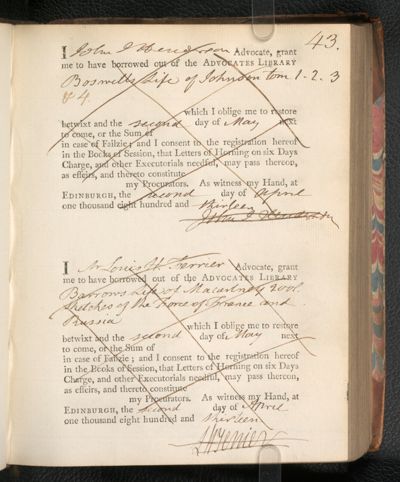 43.
I John J Henderson Advocate, grant
me to have borrowed out of the ADVOCATES LIBRARY
Boswells Life of Johnson tom 1. 2. 3
& 4.
which I oblige me to restore
betwixt and the second day of May next
to come, or the Sum of
in case of Failzie; and I consent to the registration hereof
in the Books of Session, that Letters of Horning on six Days
Charge, and other Executorials needful, may pass thereon,
as effeirs, and thereto constitute
my Procurators. As witness my Hand, at
EDINBURGH, the second day of April
one thousand eight hundred and thirteen
John J Henderson
I Mr Louis H. Ferrier Advocate, grant
me to have borrowed out of the ADVOCATES LIBRARY
Barrows Life of Macartney 2 vol.
Sketches of the of France and
Russia
which I oblige me to restore
betwixt and the second day of May next
to come, or the Sum of
in case of Failzie; and I consent to the registration hereof
in the Books of Session, that Letters of Horning on six Days
Charge, and other Executorials needful, may pass thereon,
as effeirs, and thereto constitute
my Procurators. As witness my Hand, at
EDINBURGH, the second day of April
one thousand eight hundred and thirteen
LHFerrier